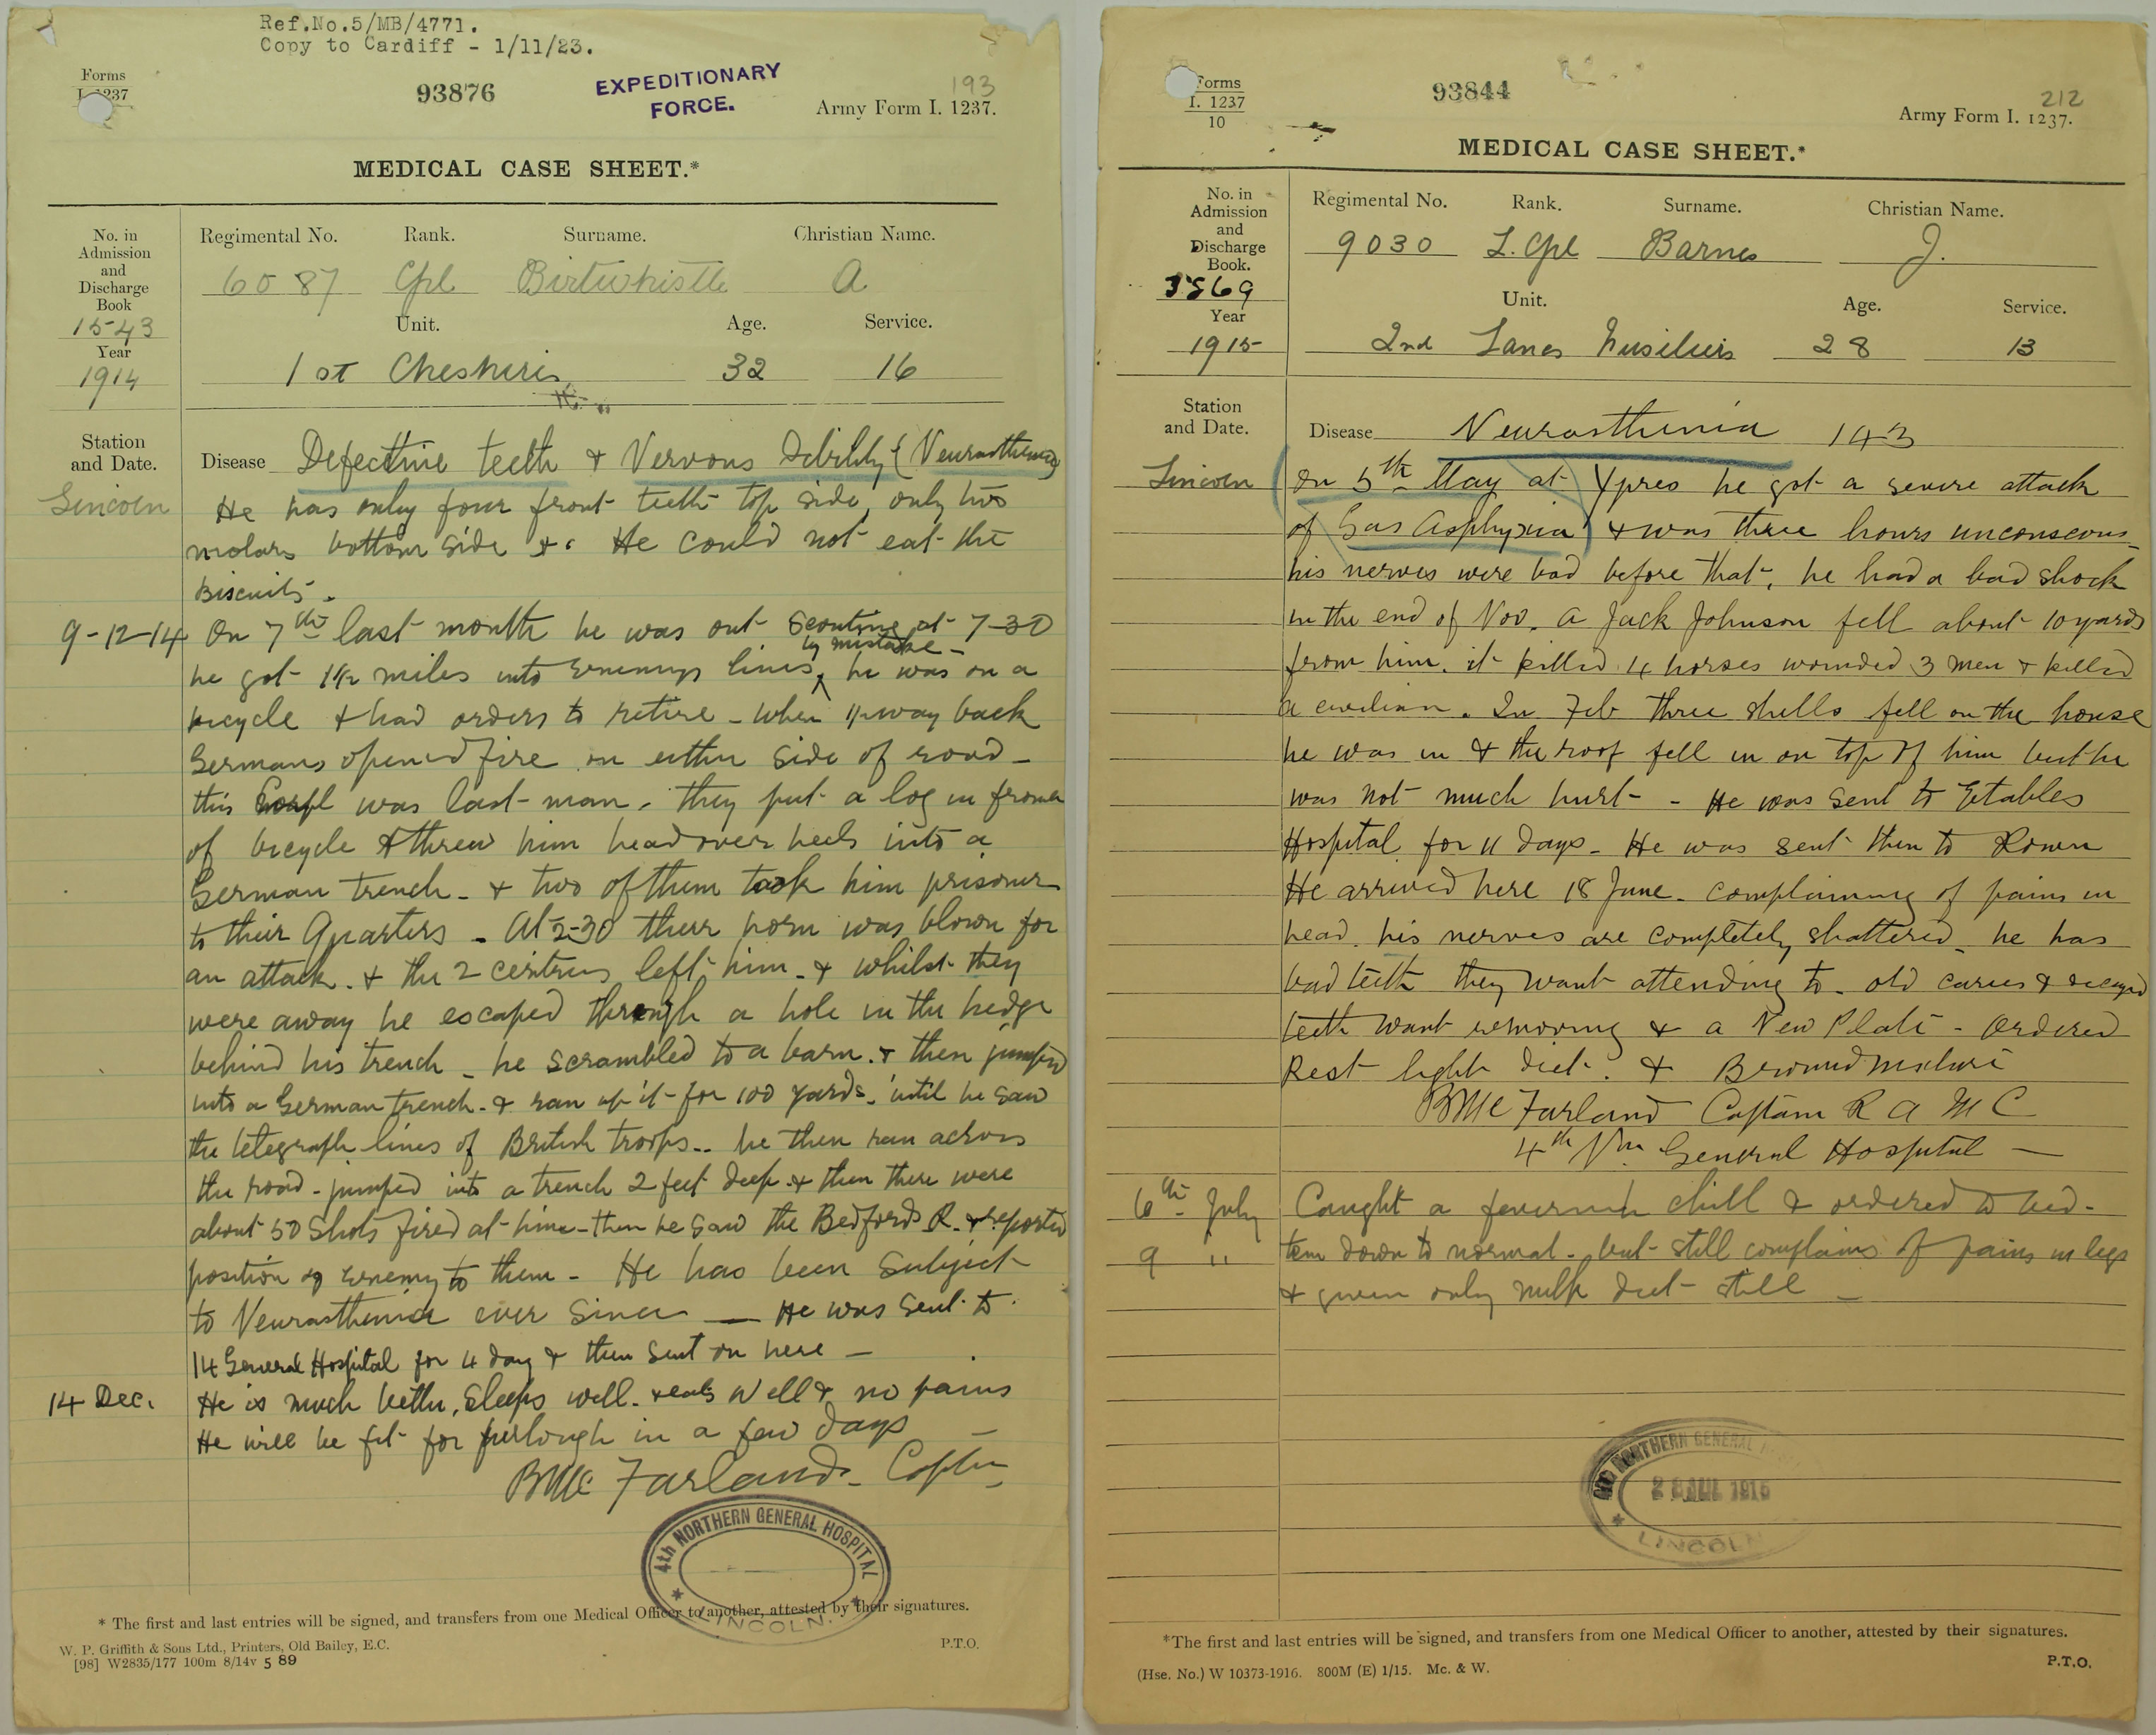 Ref.No.5/MB/4771.
Copy to Cardiff - 1/11/23.
Forms
I. 1237
93876
EXPEDITIONARY
FORCE.
193
Army Form I. 1237.
MEDICAL CASE SHEET.*
No. in
Admission
and
Discharge
Book
1543
Year
1914
Regimental No. Rank. Surname. Christian Name.
6087 Cpl Birtwhistle A
Unit. Age. Service.
1st Cheshires 32 16
Station
and Date.
Disease Defective teeth & Nervous Debility (Neurasthenia)
Lincoln
He has only four front teeth top side, only two
molars bottom side &c He could not eat the
Biscuits.
9-12-14 On 7th last month he was out Scouting at 7-30
by mistake
he got 1½ miles into Enemys lines, he was on a
bicycle & had orders to retire - when way back
Germans opened fire on either side of road -
this Corpl was last man, they put a log in front
of bicycle & threw him head over heels into a
German trench - & two of them took him prisoner
to their Quarters - At 2-30 their horn was blown for
an attack. & the 2 left him - & whilst they
were away he escaped through a hole in the hedge
behind his trench - he scrambled to a barn. & then jumped
into a German trench - & ran up it for 100 yards. until he saw
the telegraph lines of British troops.. he then ran across
the road - jumped into a trench 2 feet deep & then there were
about 50 Shots fired at him - then he saw the Bedfords R. & reported
position of Enemy to them - He has been Subject
to Neurasthenia ever since — He was sent to
14 General Hospital for 4 day & then sent on here —
14 Dec. He is much better, sleeps well. & eats well & no pains
He will be fit for furlough in a few days
BMcFarland - Captn
4th NORTHERN GENERAL HOSPITAL
* LINCOLN. *
* The first and last entries will be signed, and transfers from one Medical Officer to another, attested by their signatures.
W. P. Griffith & Sons Ltd., Printers, Old Bailey, E.C.
P.T.O.
[98] W2835/177 100m 8/14v 5 89
Forms
I. 1237
10
93844
212
Army Form I. 1237.
MEDICAL CASE SHEET.*
No. in
Admission
and
Discharge
Book.
3569
Year
1915
Regimental No. Rank. Surname. Christian Name.
9030 L. Cpl Barnes J.
Unit. Age. Service.
2nd Lancs Fusiliers 28 13
Station
and Date.
Disease Neurasthenia 143
Lincoln On 5th May at Ypres he got a severe attack
of Gas Asphyxia & was three hours unconscous
his nerves were bad before that, he had a bad shock
in the end of Nov. a Jack Johnson fell about 10 yards
from him. it killed 4 horses wounded 3 men & killed
a civilian. In Feb three shells fell on the house
he was in & the roof fell in on top of him but he
was not much hurt - He was sent to Etables
Hospital for 11 days - He was sent then to Rouen
He arrived here 18 June - complaining of pains in
head. his nerves are completely shattered - he has
bad teeth they want attending to - old caries & decayed
teeth want removing & a New Plate - Ordered
Rest light diet. &
BMcFarland Captain R A M C
4th Nn General Hospital —
6th July Caught a feverish chill & ordered to bed -
9 " tem down to normal - but still complains of pains in legs
& given only milk diet still —
NORTHERN GENERAL
28 JUL 1915
* LINCOLN
*The first and last entries will be signed, and transfers from one Medical Officer to another, attested by their signatures.
P.T.O.
(Hse. No.) W 10373-1916. 800M (E) 1/15. Mc. & W.